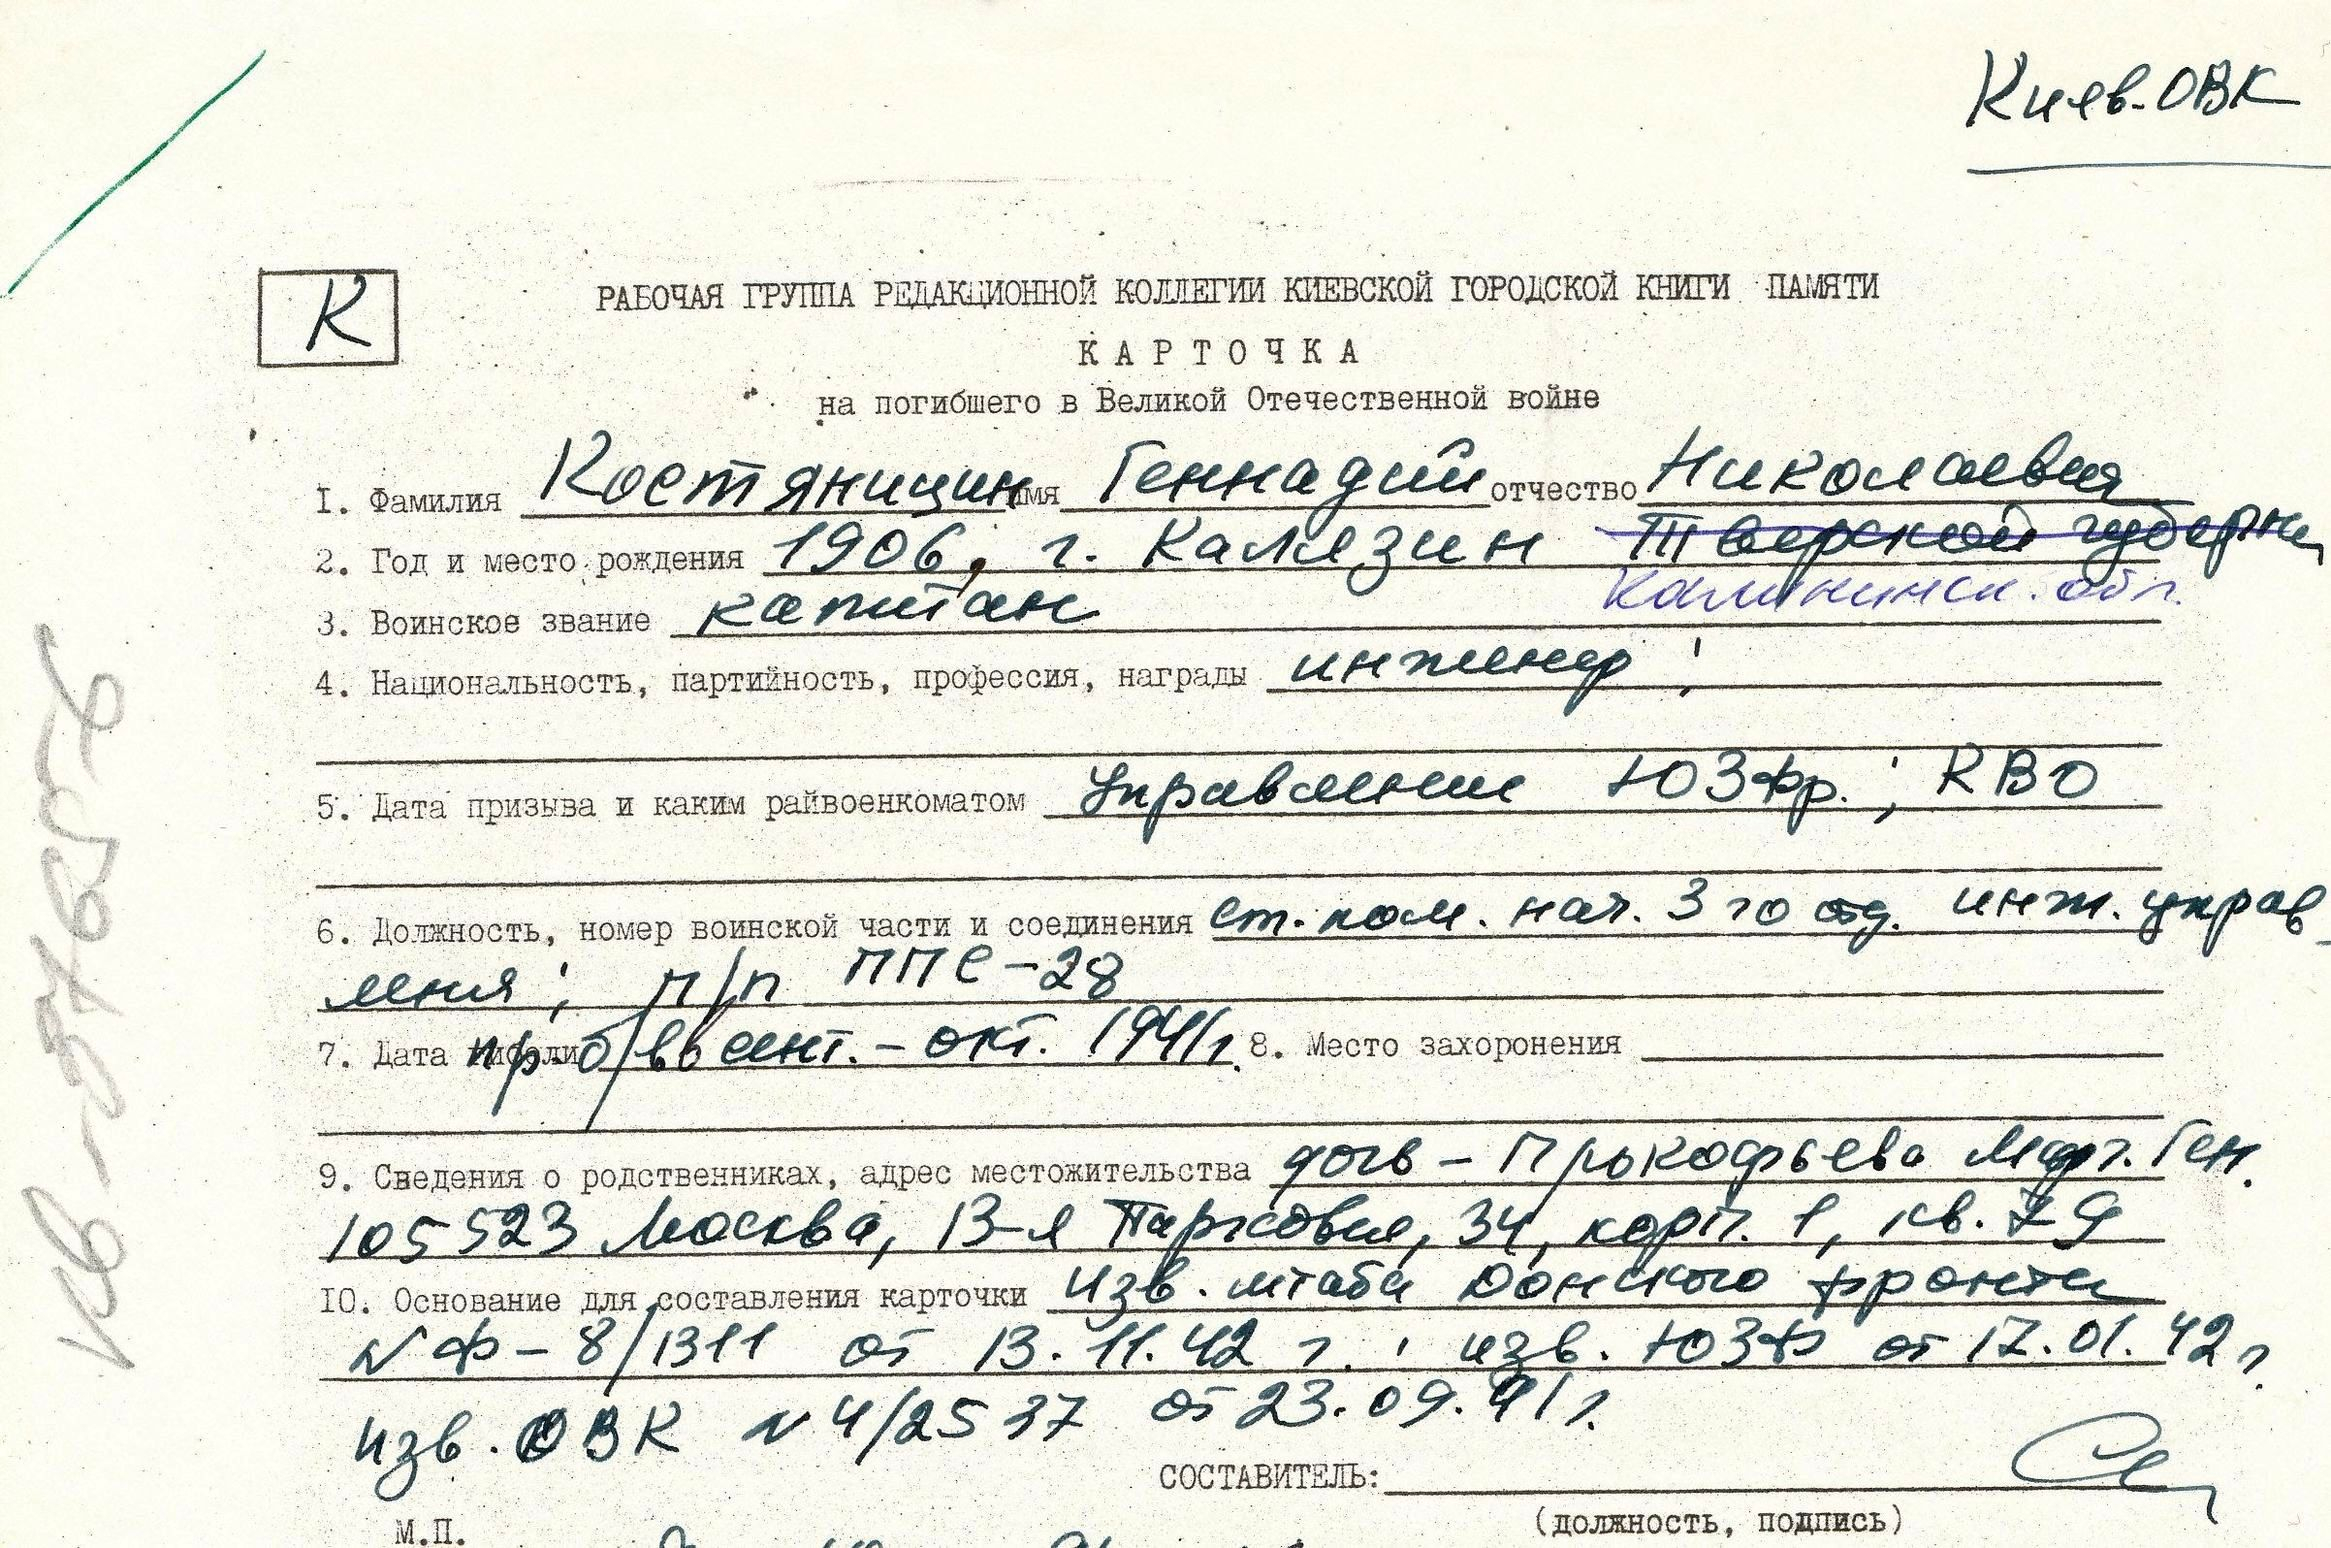 Киев. ОВК
К
РАБОЧАЯ ГРУППА РЕДАКЦИОННОЙ КОЛЛЕГИИ КИЕВСКОЙ ГОРОДСКОЙ КНИГИ ПАМЯТИ
КАРТОЧКА
на погибшего в Великой Отечественной войне
1. Фамилия Костяницин имя Геннадий отчество Николаевич
2. Год и место рождения 1906, г. Калязин Тверской губерни
Калининск. обл.
3. Воинское звание капитан
4. Национальность, партийность, профессия, награды инженер;
5. Дата призыва и каким райвоенкоматом Управление ЮЗФр.; КВО
6. Должность, номер воинской части и соединения ст. пом. нач. 3го отд. инж. управ-
ления; п/п ППС-28
7. Дата гибели пр. б/в в сент.-окт. 1941г. 8. Место захоронения
9. Сведения о родственниках, адрес местожительства дочь - Прокофьева Марг. Ген.
105523 Москва, 13-я Парковая, 34, корп. 1, кв. 79
10. Основание для составления карточки изв. штаба Донского фронта
N Ф-8/1311 от 13.11.42 г.; изв. ЮЗФ от 17.01.42г.
изв. ОВК N 4/2537 от 23.09.41г.
СОСТАВИТЕЛЬ:
(должность, подпись)
М.П.